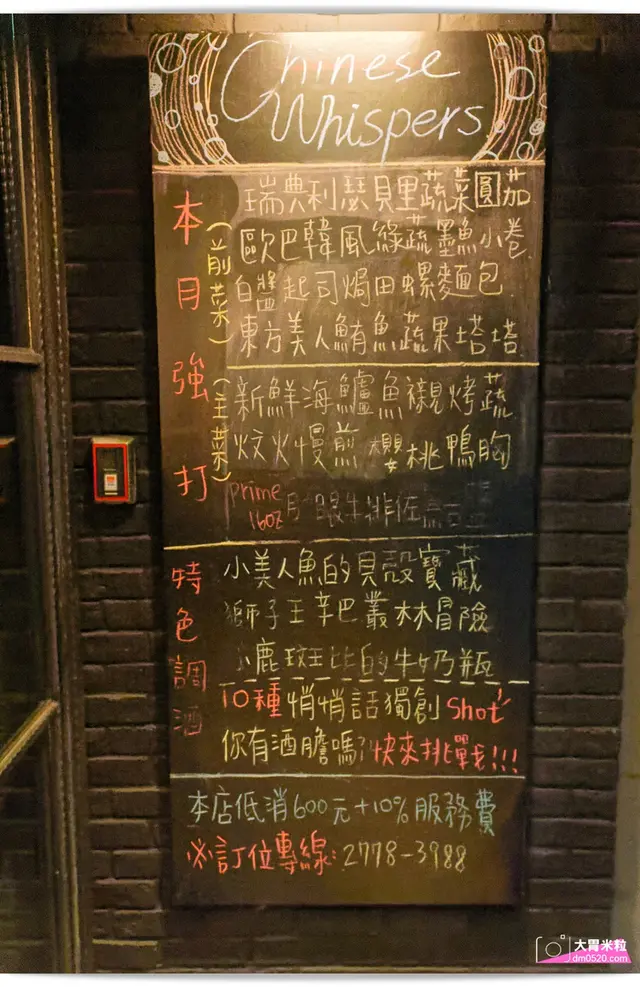 Chinese
Whispers
本月強打
(前菜)
瑞典利瑟貝里蔬菜圓茄
歐巴韓風綠蔬墨魚小卷
白醬起司焗田螺麵包
東方美人鮪魚蔬果塔塔
(主菜)
新鮮海鱸魚襯烤蔬
炆火慢煎櫻桃鴨胸
prime
16oz
眼牛排佐
特色調酒
小美人魚的貝殼寶藏
獅子王辛巴叢林冒險
小鹿斑比的牛奶瓶
10種悄悄話獨創shot
你有酒膽嗎?快來挑戰!!!
本店低消600元+10%服務費
訂位專線:2778-3988
大胃米粒
dm0520.com